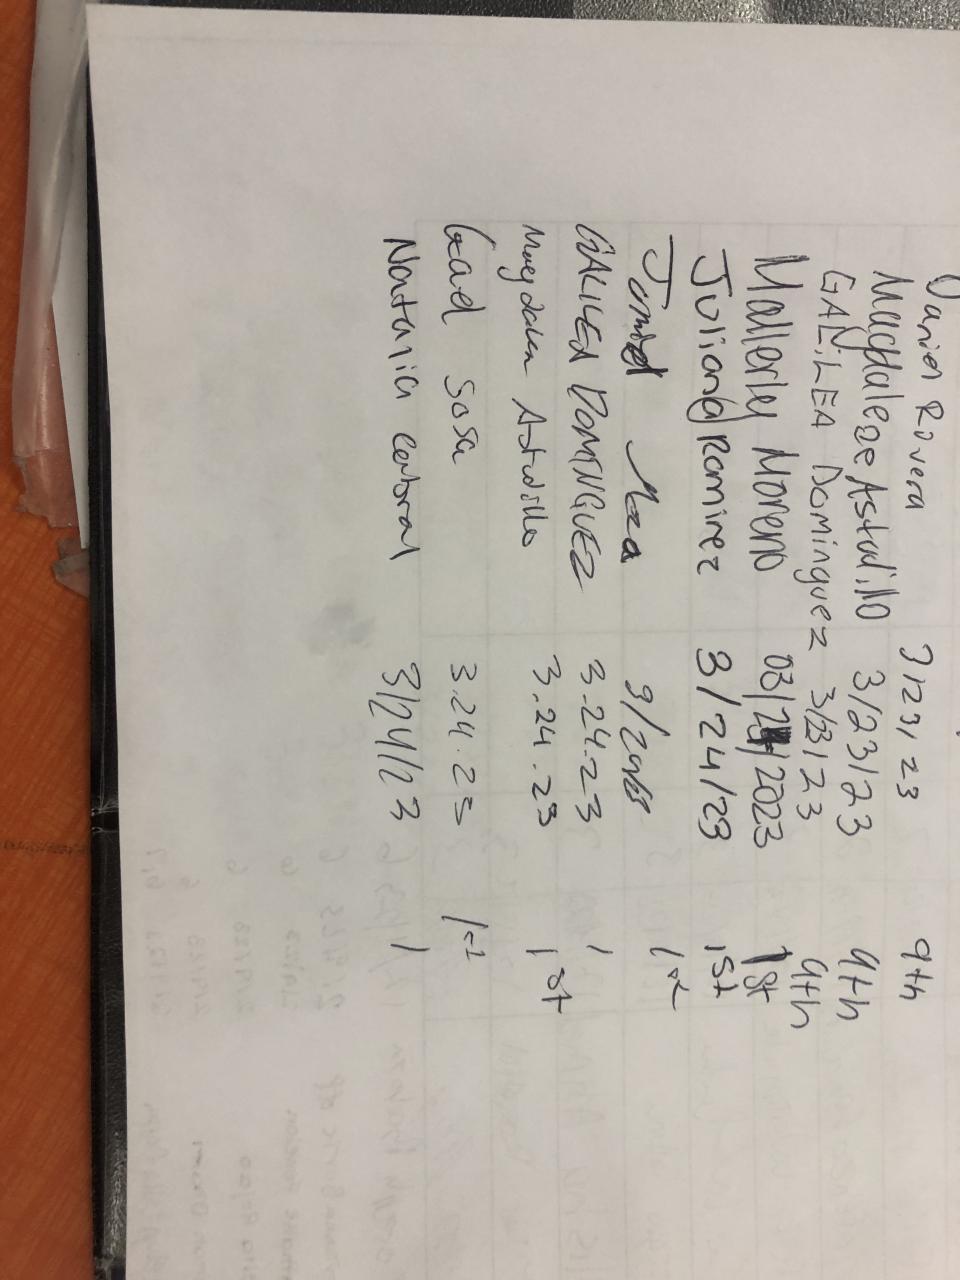 Rivera 3123, 23 9th
Magdalege Astudillo 3/23/23 9th
GALILEA Dominguez 3/23/23 9th
Mallerly Moreno 03/24/2023 1st
Juliana Ramirez 3/24/23 1st
Meza
GALILEA DOMINGUEZ 3.24.23 1
Magdalen Astudillo 3.24.23 1st
Gad Sosa 3.24.23
Natania Cabral 3/24/23 1